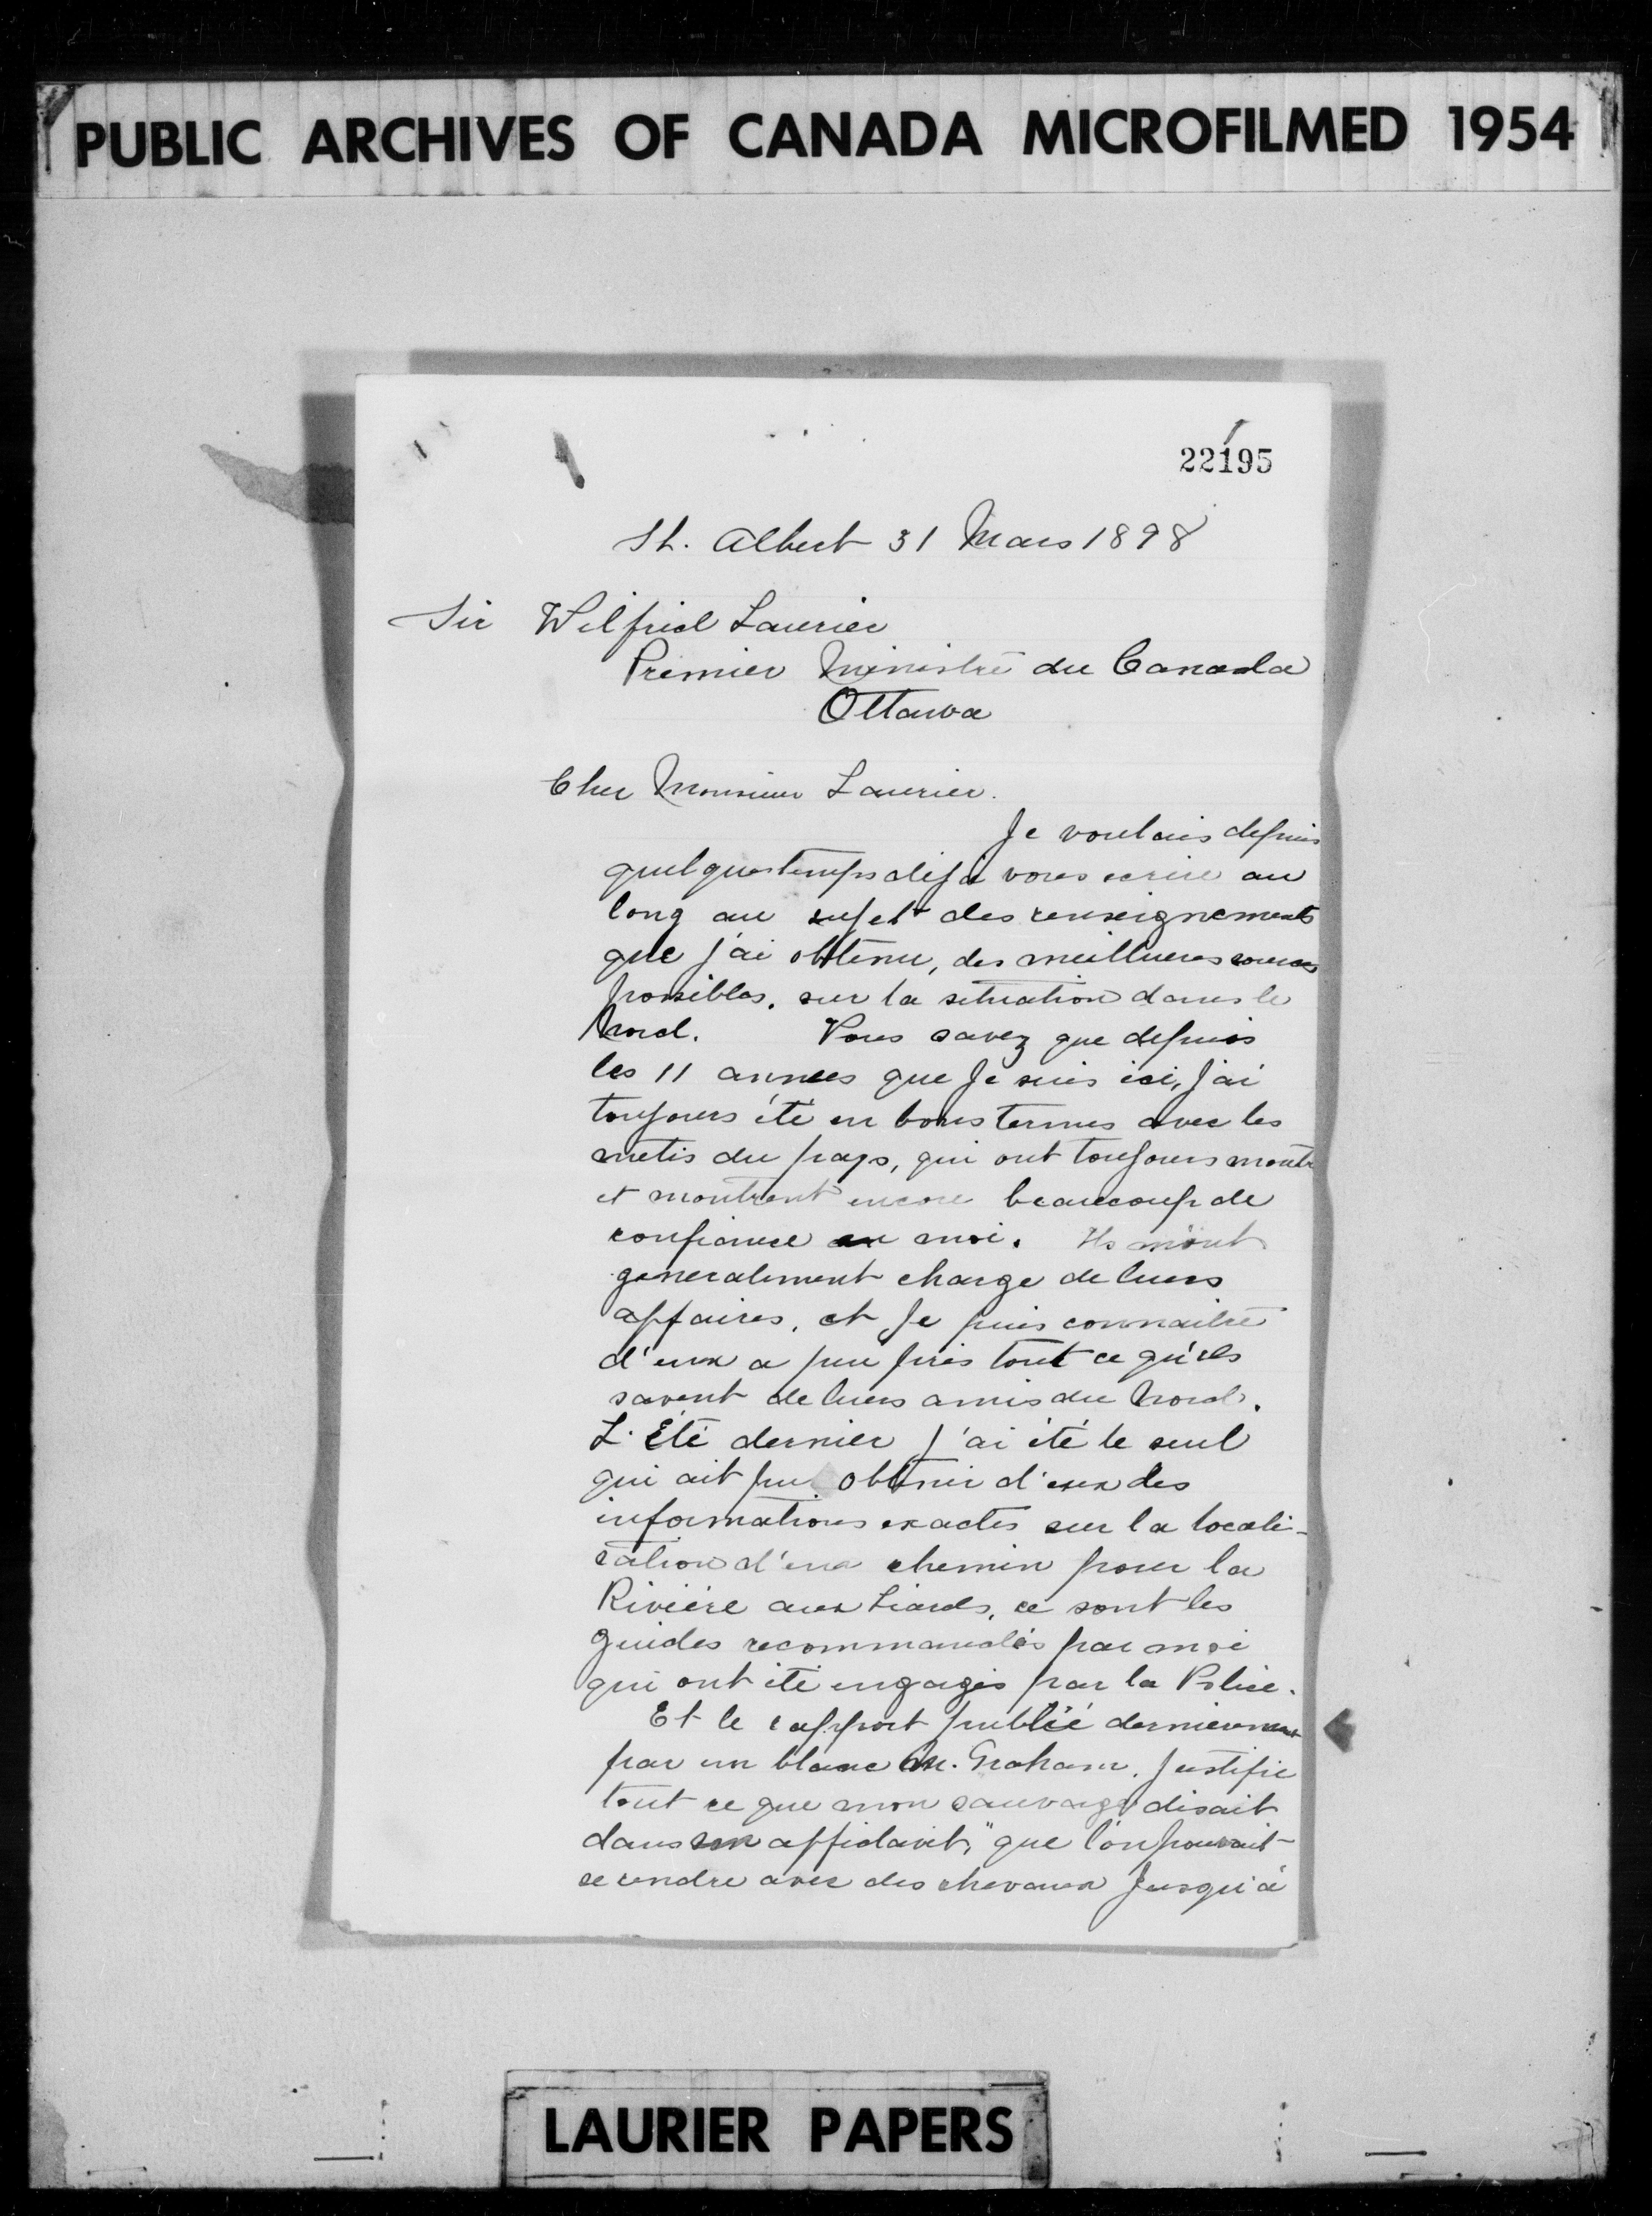 PUBLIC ARCHIVES OF CANADA MICROFILMED 1954
22195
St. Albert 31 Mars 1898
Sir Wilfrid Laurier
Premier Ministre du Canada
Ottawa
Cher Monsieur Laurier.
Je voulais depuis
quelques temps déjà vous ecrire au
long au sujet des renseignements
que j'ai obtenu, des meilleures sources
possibles, sur la situation dans le
Nord. Vous savez que depuis
les 11 annees que je suis ici, j'ai
toujours été en bons termes avec les
metis du pays, qui ont toujours montré
et montrent encore beaucoup de
confiance en moi. Ils m'ont
generalement charge de leurs
affaires, et je puis connaitre
d'eux a peu près tout ce qu'ils
savent de leurs amis du Nord.
L'Été dernier j'ai été le seul
qui ait pu obtenir d'eux des
informations exactes sur la locali-
sation d'un chemin pour la
Rivière aux Liards, ce sont les
guides recommandés par moi
qui ont été engagés par la Police.
Et le rapport publié dernierement
par un blanc M. Graham, justifie
tout ce que mon sauvage disait
dans son affidavit, "que l'on pouvait
se rendre avec des chevaux jusqu'à
LAURIER PAPERS